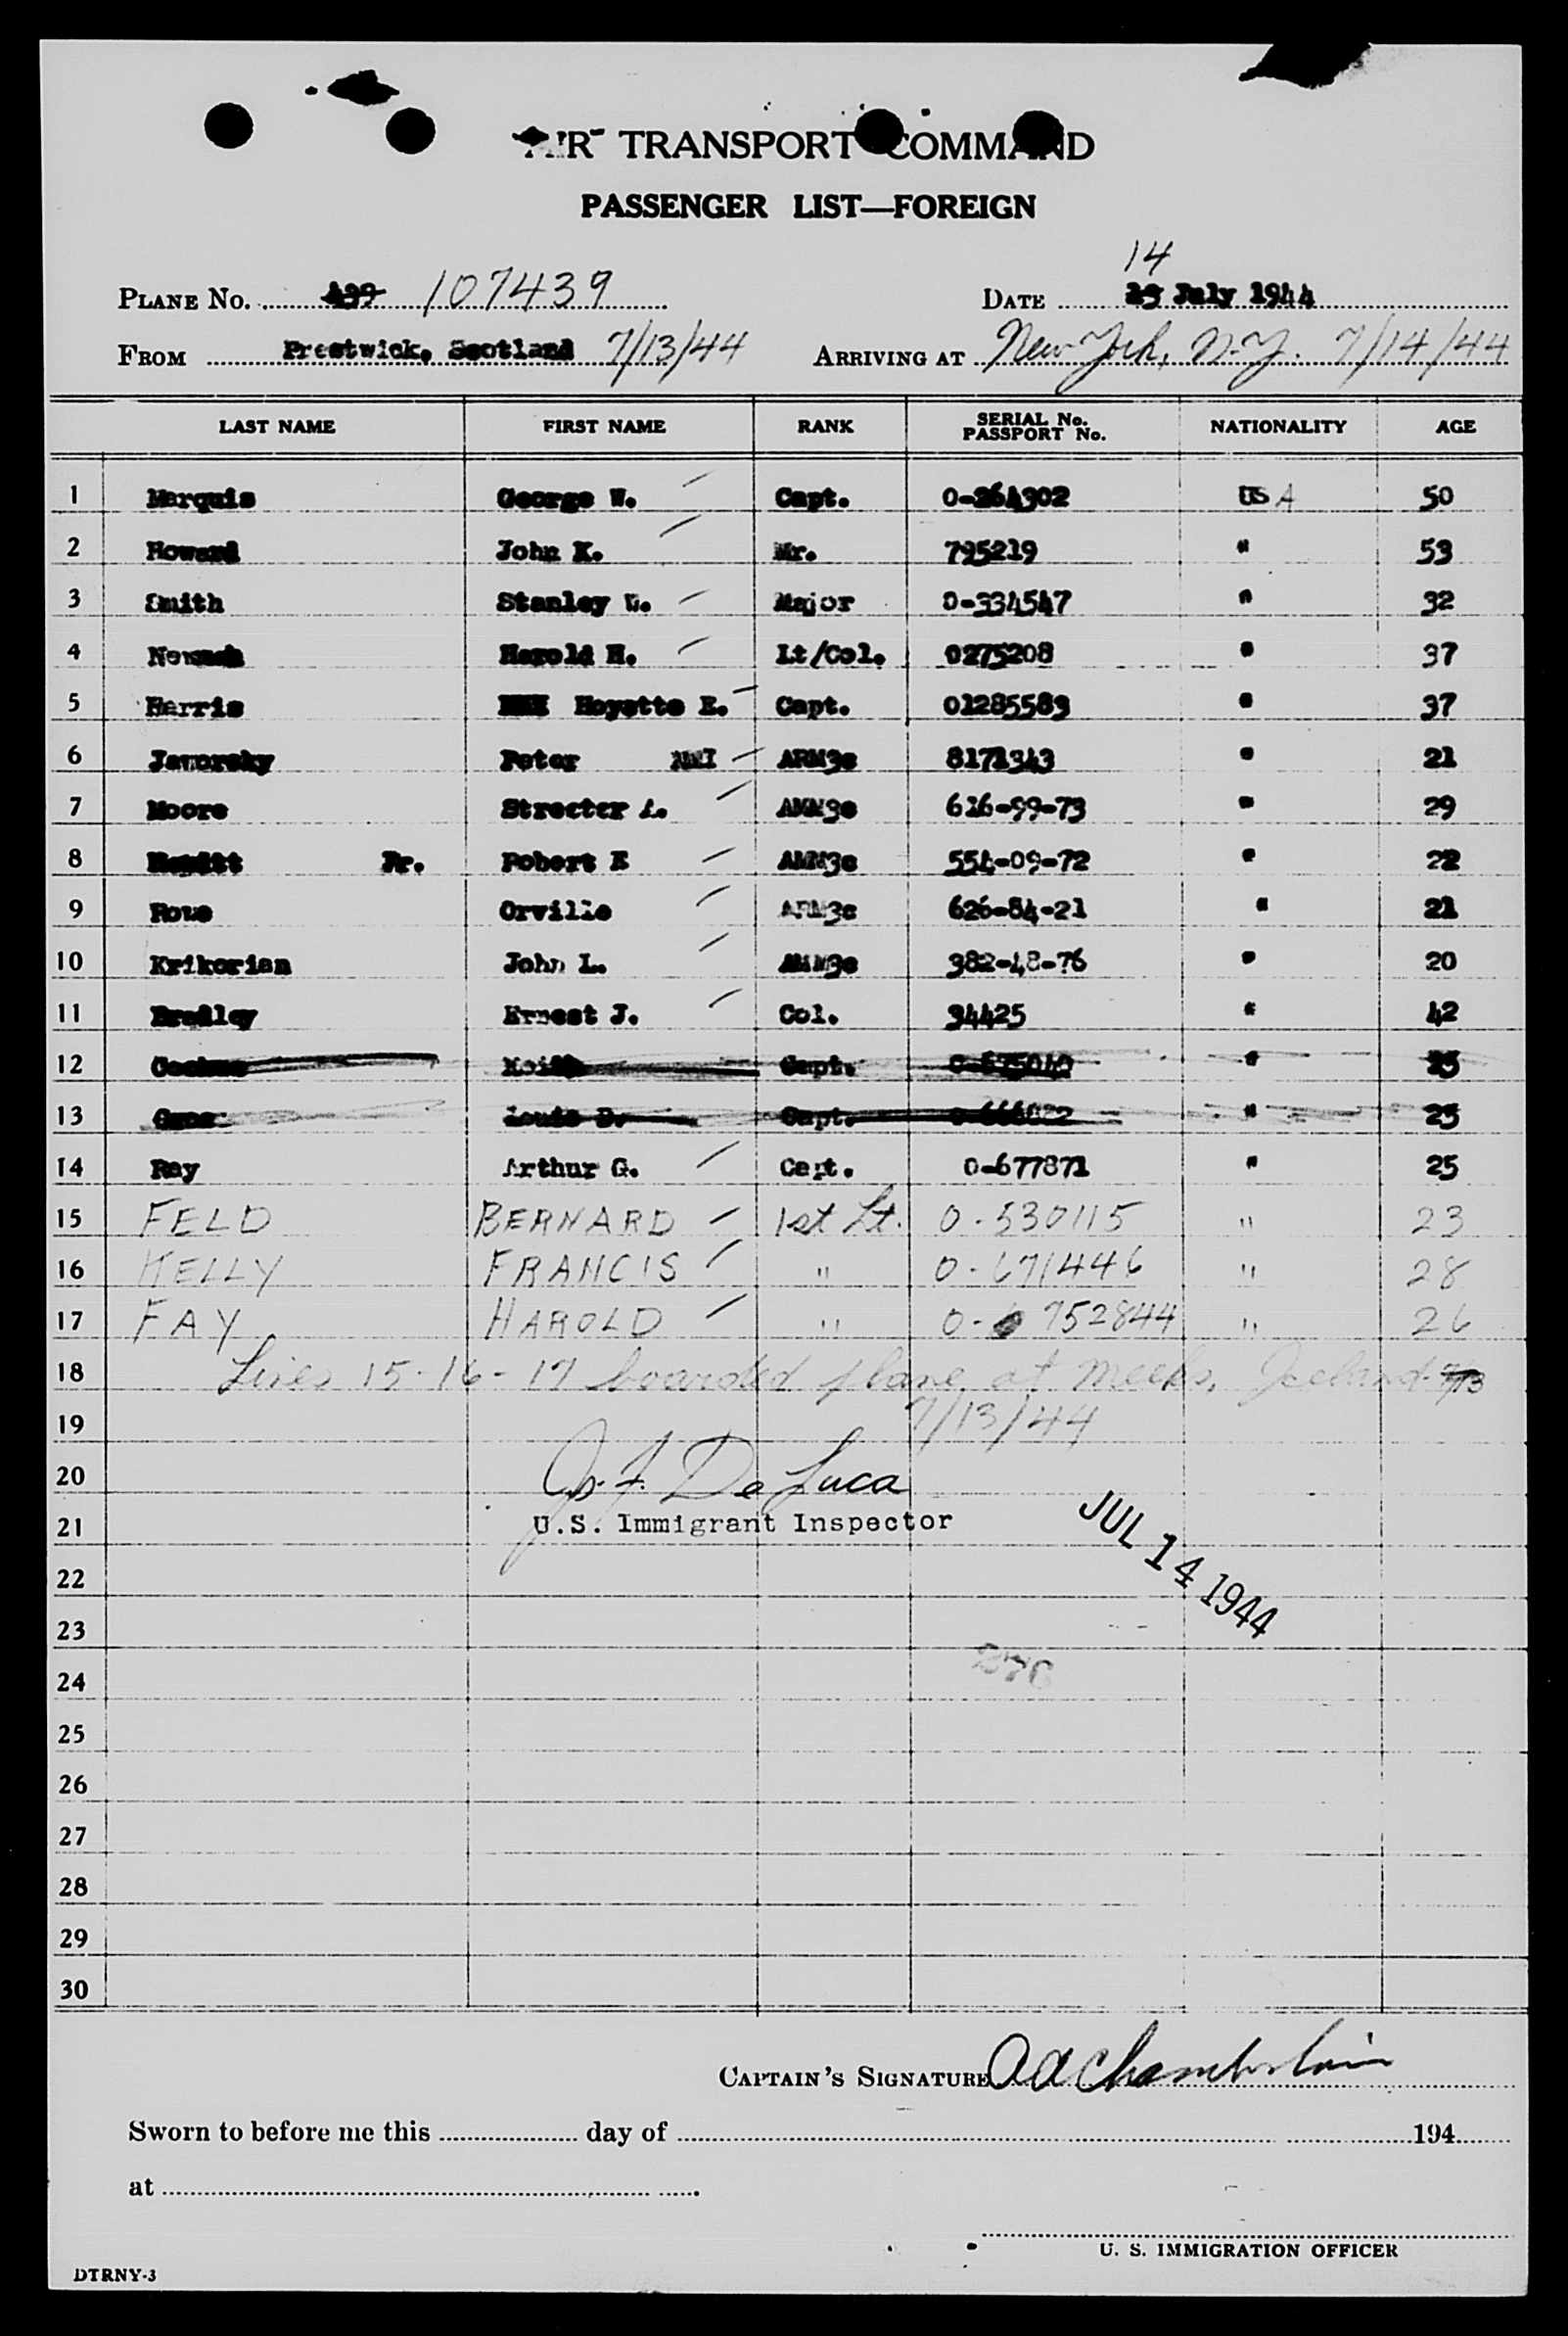 AIR TRANSPORT COMMAND
PASSENGER LIST—FOREIGN
14
PLANE No. 499 107439 DATE July 1944
FROM Prestwick, Scotland 7/13/44 ARRIVING AT New York, N.Y. 7/14/44
LAST NAME FIRST NAME RANK SERIAL No. PASSPORT No. NATIONALITY AGE
1 Marquis George W. Capt. 0-264302 US A 50
2 Howard John K. Mr. 795219 " 53
3 Smith Stanley Major 0-334547 " 32
4 Harold H. Lt/Col. 0275208 " 37
5 Harris Hoyette E. Capt. 01285589 " 37
6 Jaworsky Peter NMI ARM3c 8171343 " 21
7 Moore Streeter A. AMM3c 616-99-73 " 29
8 Jr. Robert E AMM3c 554-09-72 " 22
9 Rowe Orville ARM3c 626-84-21 " 21
10 Krikorian John L. AMM3c 382-48-76 " 20
11 Bradley Ernest J. Col. 34425 " 42
12 Keith Capt. "
13 Louis D. Capt. " 25
14 Ray Arthur G. Capt. 0-677871 " 25
15 FELD BERNARD 1st Lt. 0-530115 " 23
16 KELLY FRANCIS " 0-671446 " 28
17 FAY HAROLD " 0-752844 " 26
18 Lines 15-16-17 boarded plane at Meeks, Iceland 7/13
19 7/13/44
20 Jos. F. De Luca
21 U.S. Immigrant Inspector
JUL 14 1944
22
23
24
25
26
27
28
29
30
CAPTAIN'S SIGNATURE A A Chamberlain
Sworn to before me this day of 194
at .
U. S. IMMIGRATION OFFICER
DTRNY-3